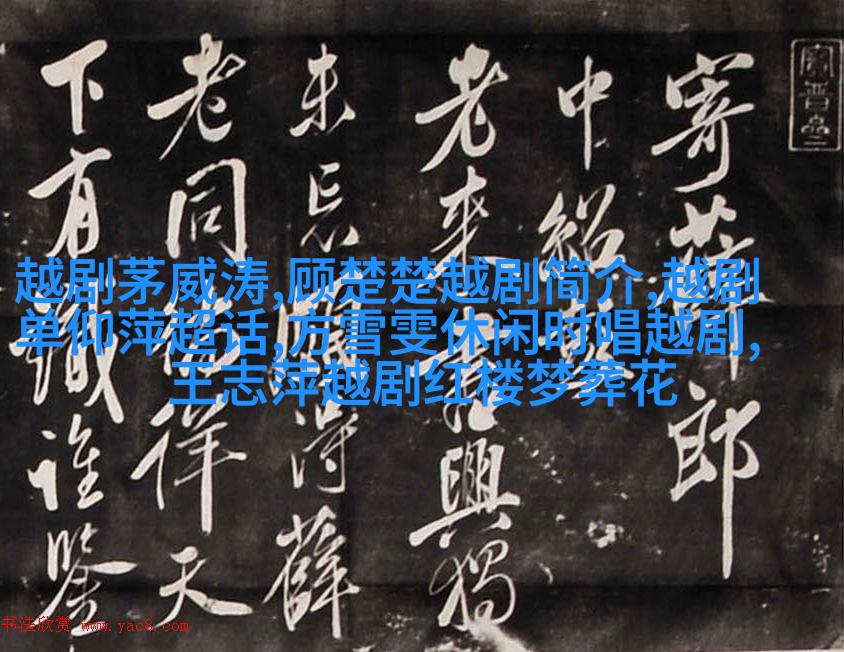 寄薛郎
中紹
老来興獨
未忘得薛
老同徉天
下有識誰鑒
越剧茅威涛,顾楚楚越剧简介,越剧
单仰萍超话,方雪雯休闲时唱越剧,
王志萍越剧红楼梦葬花
书法欣赏 www.yac8.com